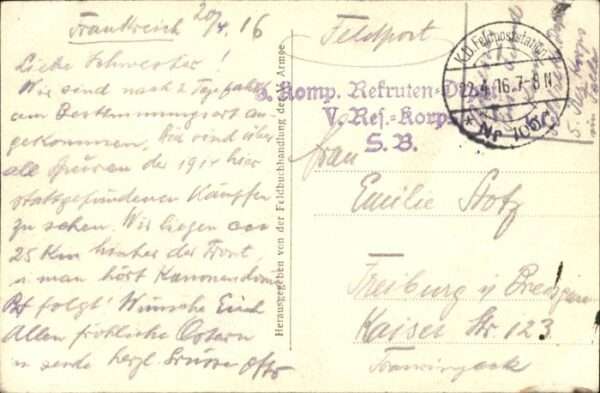 Frankreich 20/4.16
Liebe Schwester!
Wir sind nach 2 Tage
am Bestimmungsort an-
gekommen, sind über-
all Spuren der 1914 hier
stattgefundenen Kämpfen
zu sehen. Wir liegen ca
25 Km hinter der Front,
u man hört Kanonendonner
Bf folgt! Wünsche Euch
Allen fröhliche Ostern
u sende herzl. Grüsse Otto
Herausgegeben von der Feldbuchhandlung der Armee
Feldpost
K.D. Feldpoststation
4.16.7-8N
* Nr 105 *
Komp. Rekruten-Depot
V. Res.-Korps
S. B.
Frau
Emilie Stotz
Freiburg i/ Breisgau
Kaiser Str. 123
5. Res Korps